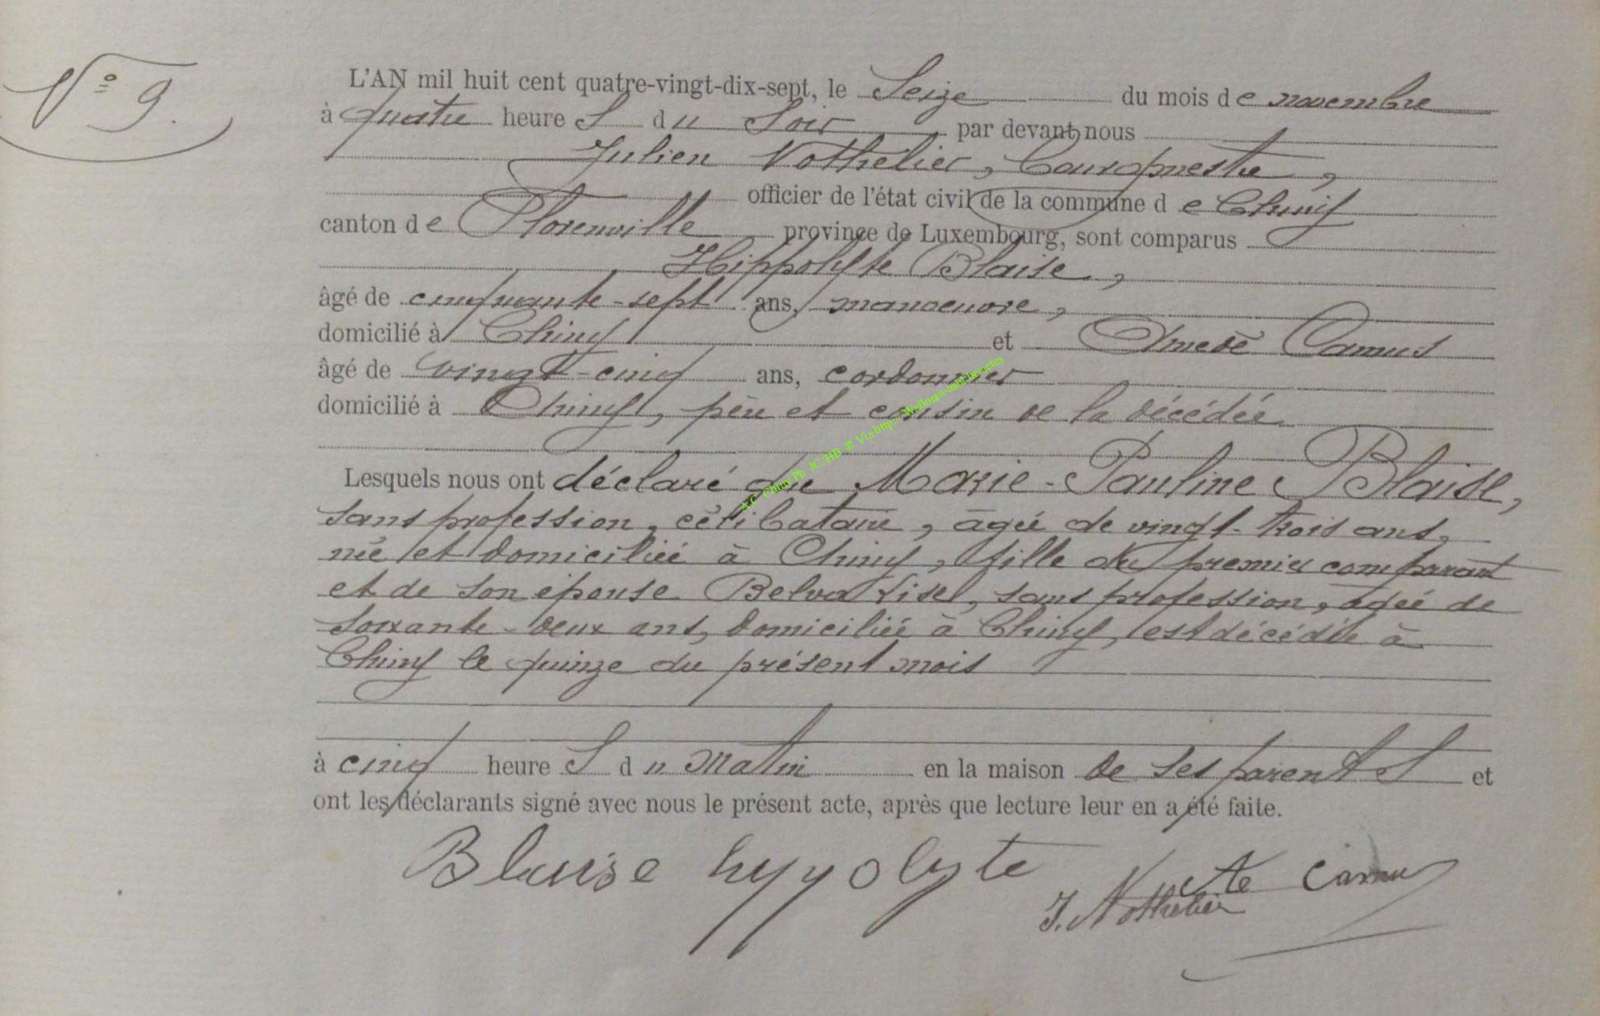 N° 9.
L'AN mil huit cent quatre-vingt-dix-sept, le Seize du mois de novembre
à quatre heures du Soir par devant nous
Julien Nothelier, Bourgmestre,
officier de l'état civil de la commune de Chiny
canton de Florenville province de Luxembourg, sont comparus
Hippolyte Blaise,
âgé de cinquante-sept ans, manoeuvre,
domicilié à Chiny et Amedé Camus
âgé de vingt-cinq ans, cordonnier
domicilié à Chiny, père et cousin de la décédée
Lesquels nous ont déclaré que Marie-Pauline Blaise,
sans profession, célibataire, âgée de vingt-trois ans,
née et domiciliée à Chiny, fille du premier comparant
et de son épouse Belva Lise, sans profession, agée de
soixante-deux ans, domiciliée à Chiny, est décédée à
Chiny le quinze du présent mois
à cinq heures du matin en la maison de ses parents et
ont les déclarants signé avec nous le présent acte, après que lecture leur en a été faite.
Blaise hypolyte
Ate Camus
J. Nothelier